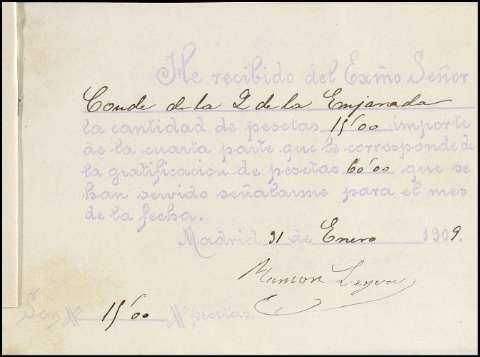 He recibido del Exmo Señor
Conde de la Q de la Enjarada
la cantidad de pesetas 15'00 importe
de la cuarta parte que le corresponde de
la gratificacion de pesetas 60'00 que se
han servido señalarme para el mes
de la fecha.
Madrid 31 de Enero 1909.
Ramon Leyva
Son 15'00 pesetas.